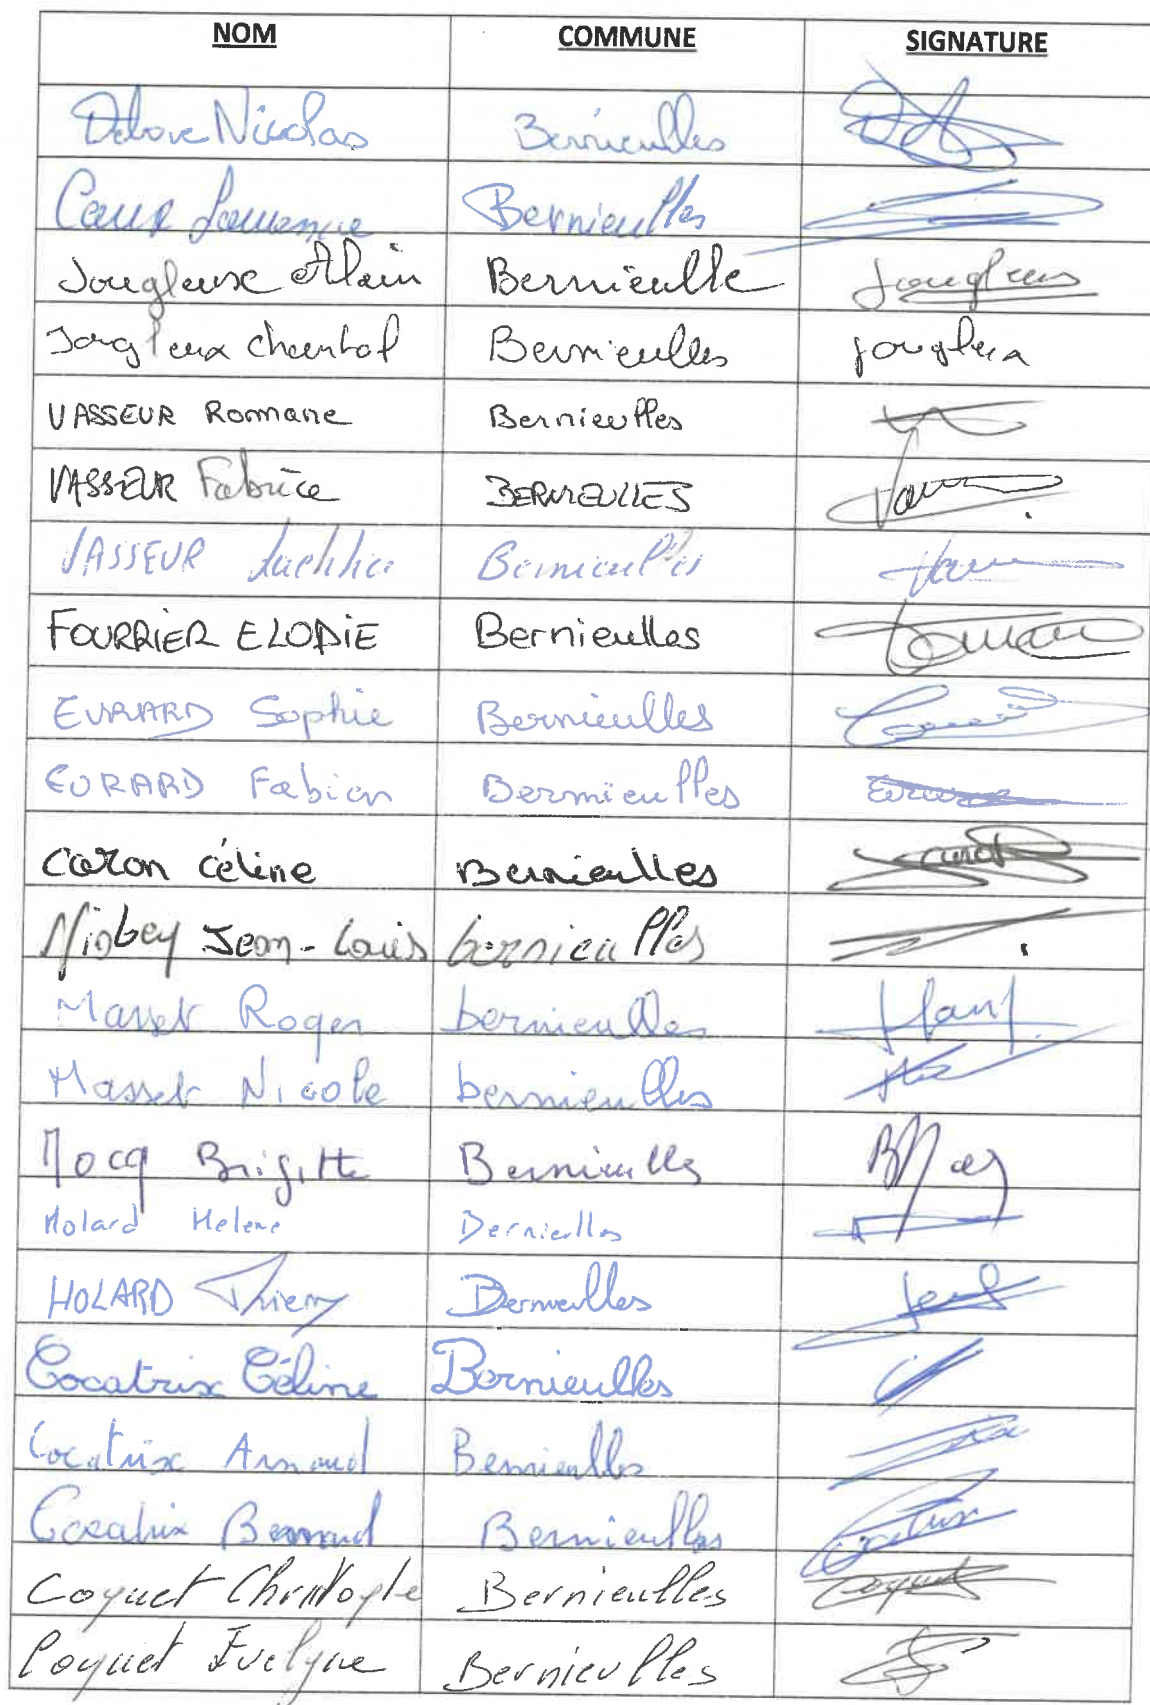 NOM COMMUNE SIGNATURE
Delove Nicolas Bernieulles
Caux Laurence Bernieulles
Jougleux Alain Bernieulle Jougleux
Jougleux Chantal Bernieulles jougleux
VASSEUR Romane Bernieulles
VASSEUR Fabrice BERNIEULLES
VASSEUR Bernieulles
FOURRIER ELODIE Bernieulles
EVRARD Sophie Bernieulles
EVRARD Fabien Bernieulles
Caron Céline Bernieulles
Niobey Jean-Louis bernieulles
Masset Roger bernieulles
Masset Nicole bernieulles
Mocq Brigitte Bernieulles
Holard Helene Bernieulles
HOLARD Thierry Bernieulles
Cocatrix Céline Bernieulles
Cocatrix Arnaud Bernieulles
Cocatrix Bernard Bernieulles Cocatrix
Coquet Christophe Bernieulles Coquet
Coquet Evelyne Bernieulles